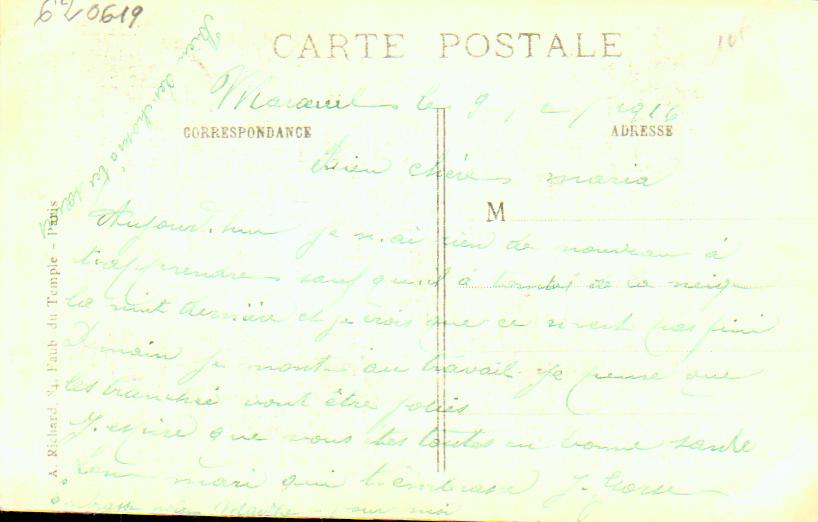 620619
CARTE POSTALE
Marœuil le 9 / 2 / 1916
CORRESPONDANCE
ADRESSE
Bien chère maria
M
Aujourd'hui je n'ai rien de nouveau à
t'apprendre sauf qu'il à tombé de la neige
la nuit dernière et je crois que ce n'est pas fini
Demain je monte au travail. Je pense que
les tranchée vont être jolies
J'espère que vous êtes toutes en bonne santé
Ton mari qui t'embrasse J. Gosse
embrasse bien Marthe pour moi
Bien des choses à tes
A. Richard, 84, Faub. du Temple - Paris